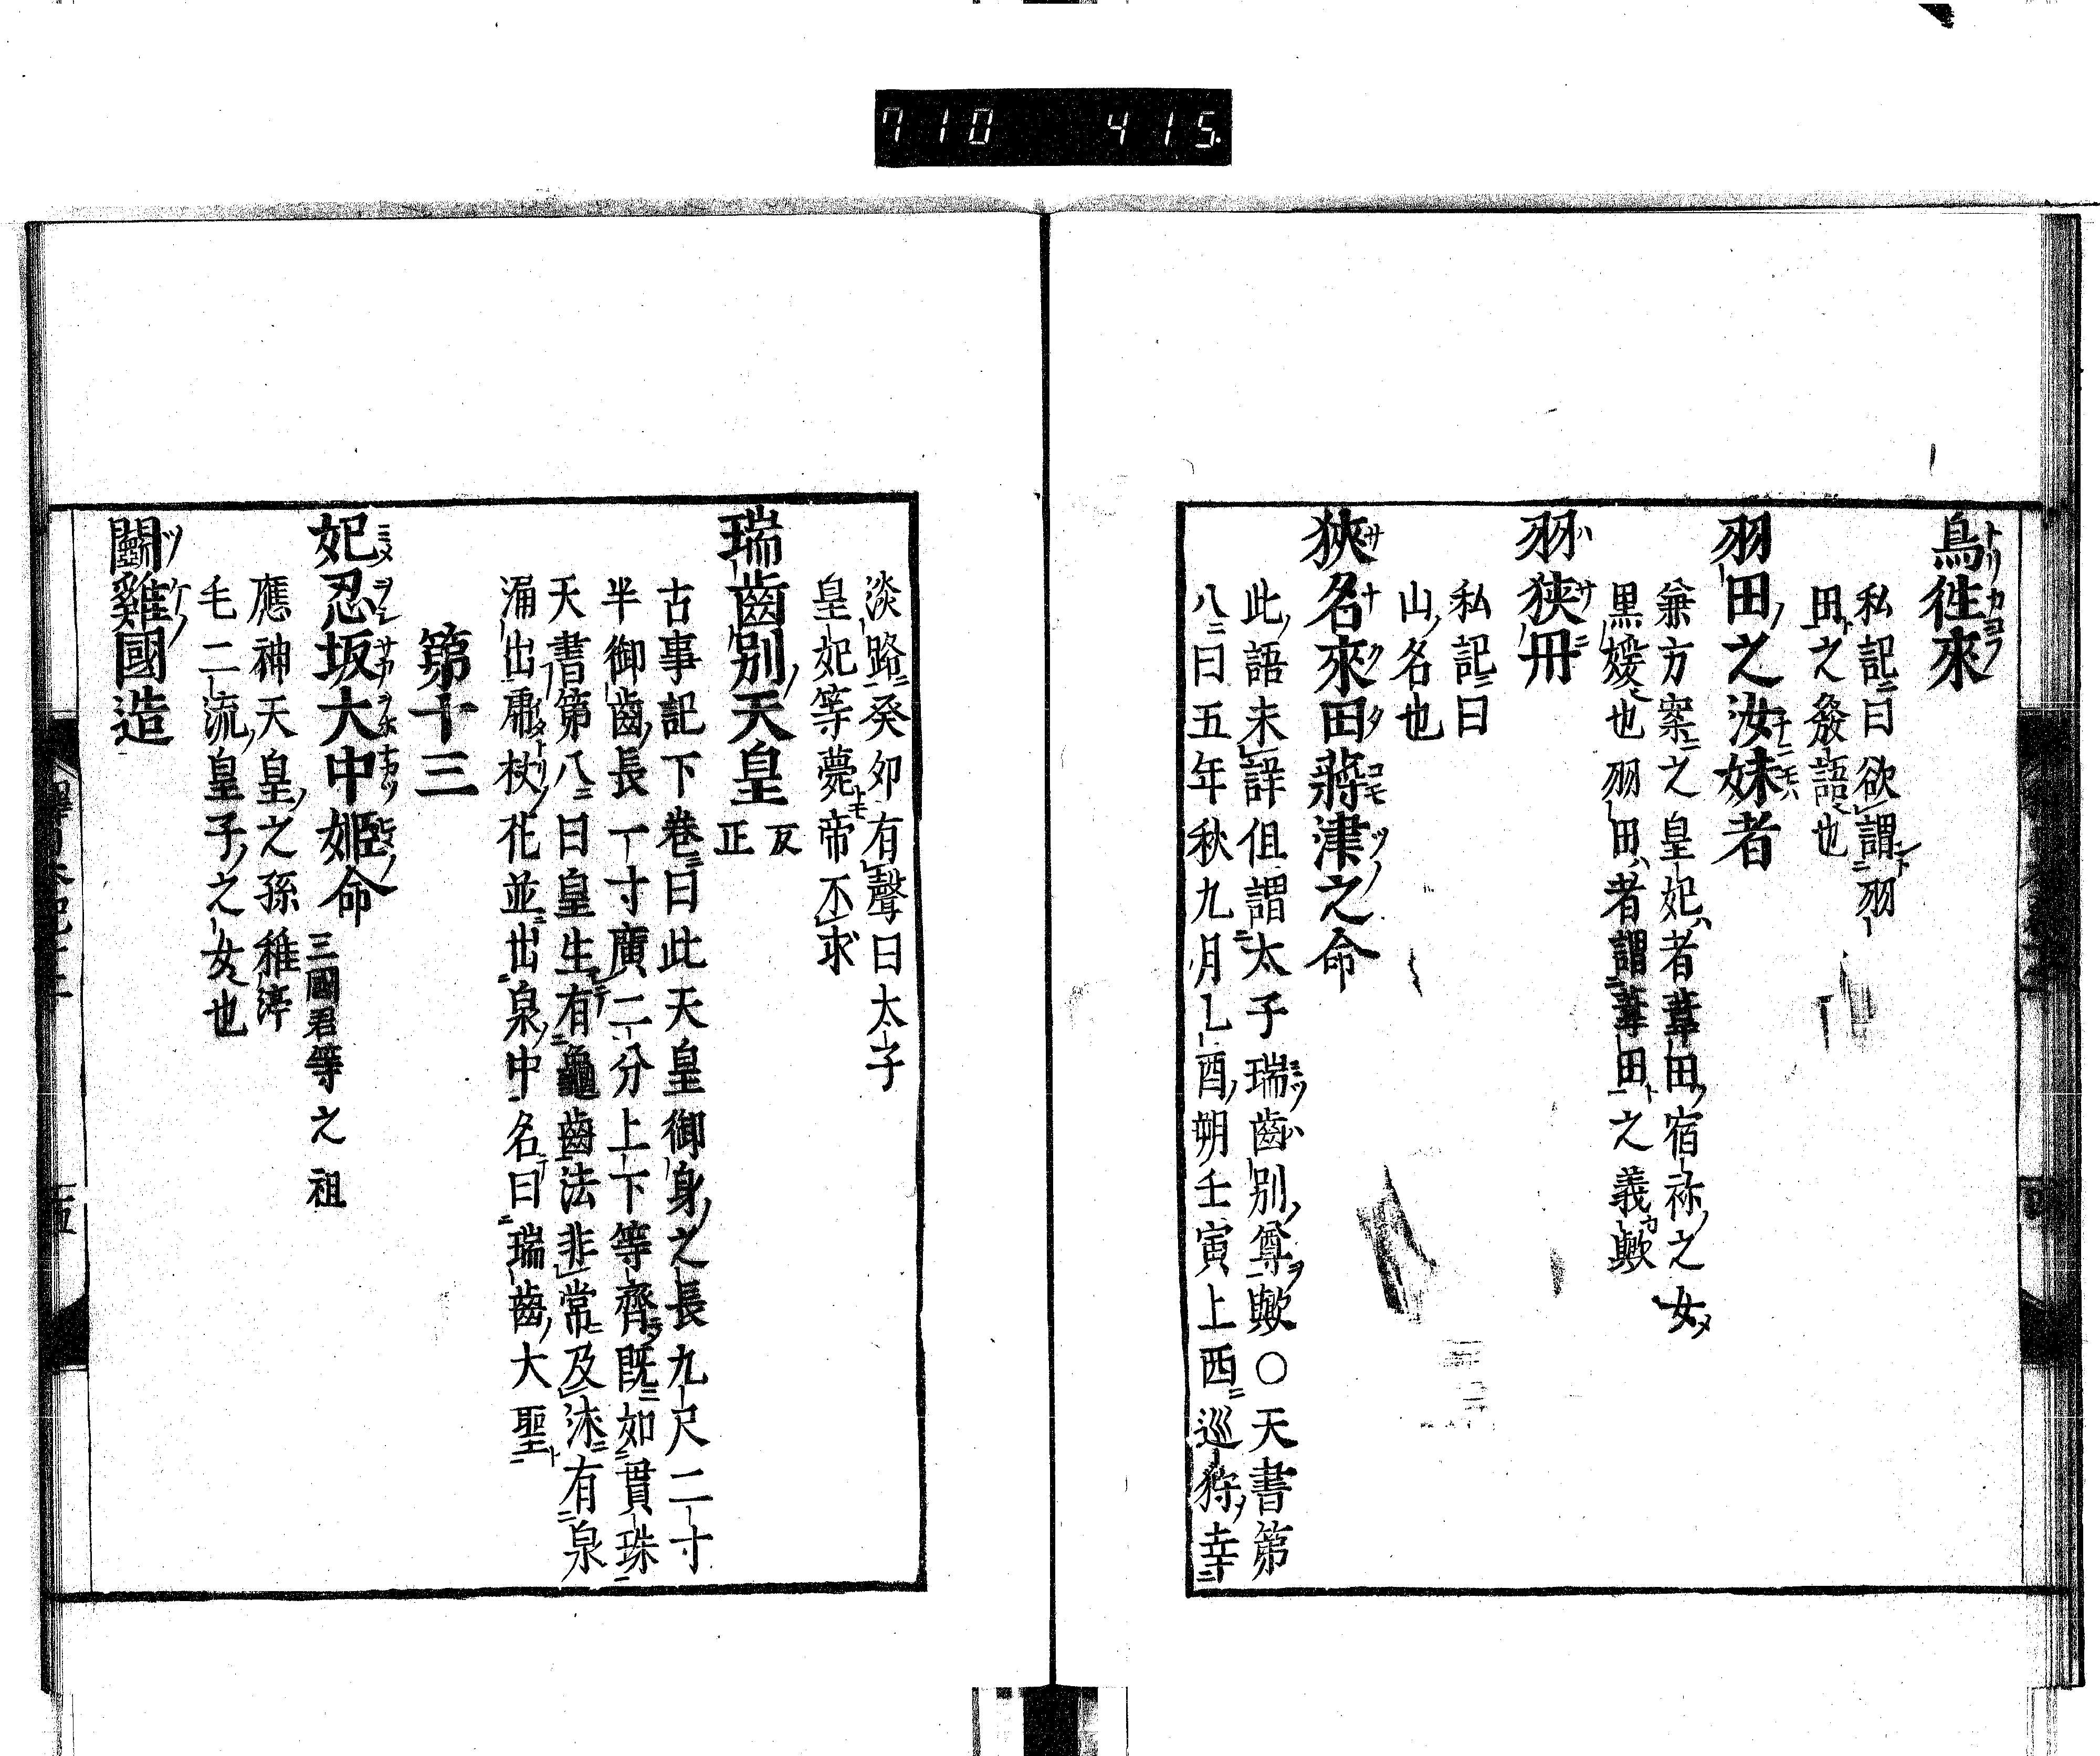 710 415
鳥徃來
私記曰欲謂羽
田之發語也
羽田之汝妹者
兼方案之皇妃者葦田宿祢之女
黒媛也羽田者謂葦田之義歟
羽狹丹
私記曰
山名也
狹名來田蔣津之命
此語未詳但謂太子瑞齒別尊歟○天書第
八曰五年秋九月乚酉朔壬寅上西巡狩幸
淡路癸卯有聲曰太子
皇妃等薨帝不求
瑞齒別天皇 反正
古事記下卷曰此天皇御身之長九尺二寸
半御齒長一寸廣二分上下等齊既如貫珠
天書第八曰皇生有龜齒法非常及沐有泉
涌出虎杖花並出泉中名曰瑞齒大聖
第十三
妃忍坂大中姬命 三國君等之祖
應神天皇之孫稚渟
毛二流皇子之女也
鬪雞國造
五